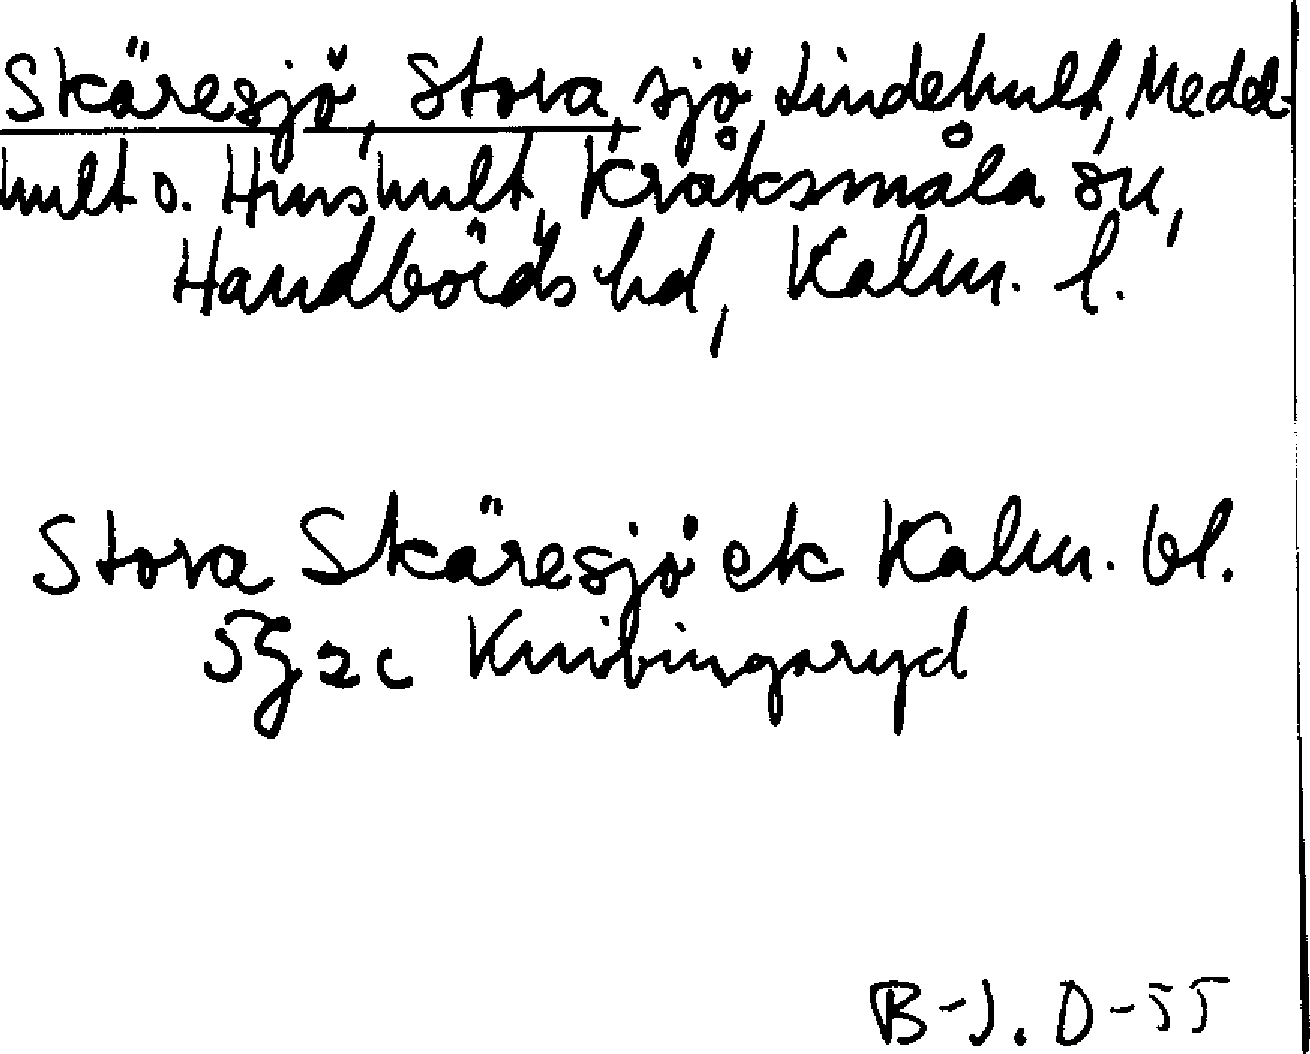 Skäresjö, Stora, sjö, Lindehult, Meddel-
hult o. Hinshult, Kråksmåla sn,
Handbörds hd, Kalm. l.
Stora Skäresjö ek Kalm. bl.
5G 2c Knivingaryd
B-J. O-55